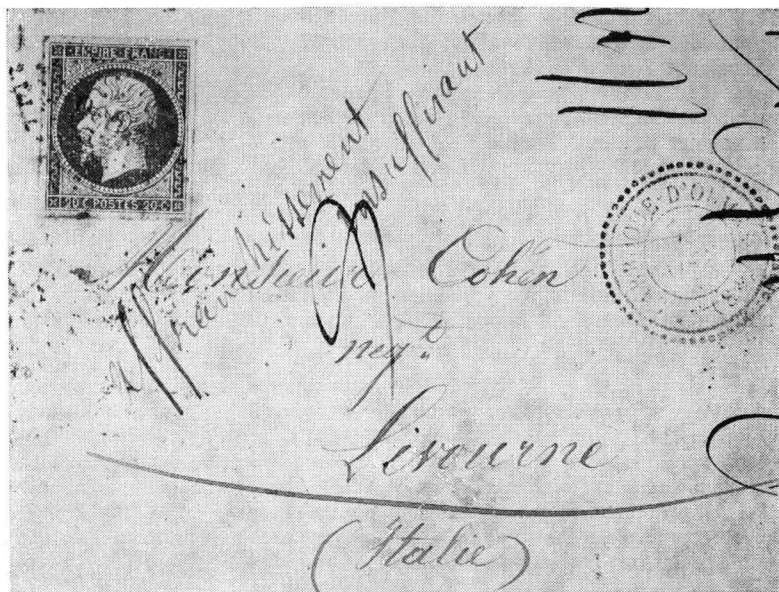 EMPIRE FRANC
20 C POSTES 20 C
Affranchissement
insuffisant
Monsieur Cohen
negt.
Livourne
(Italie)